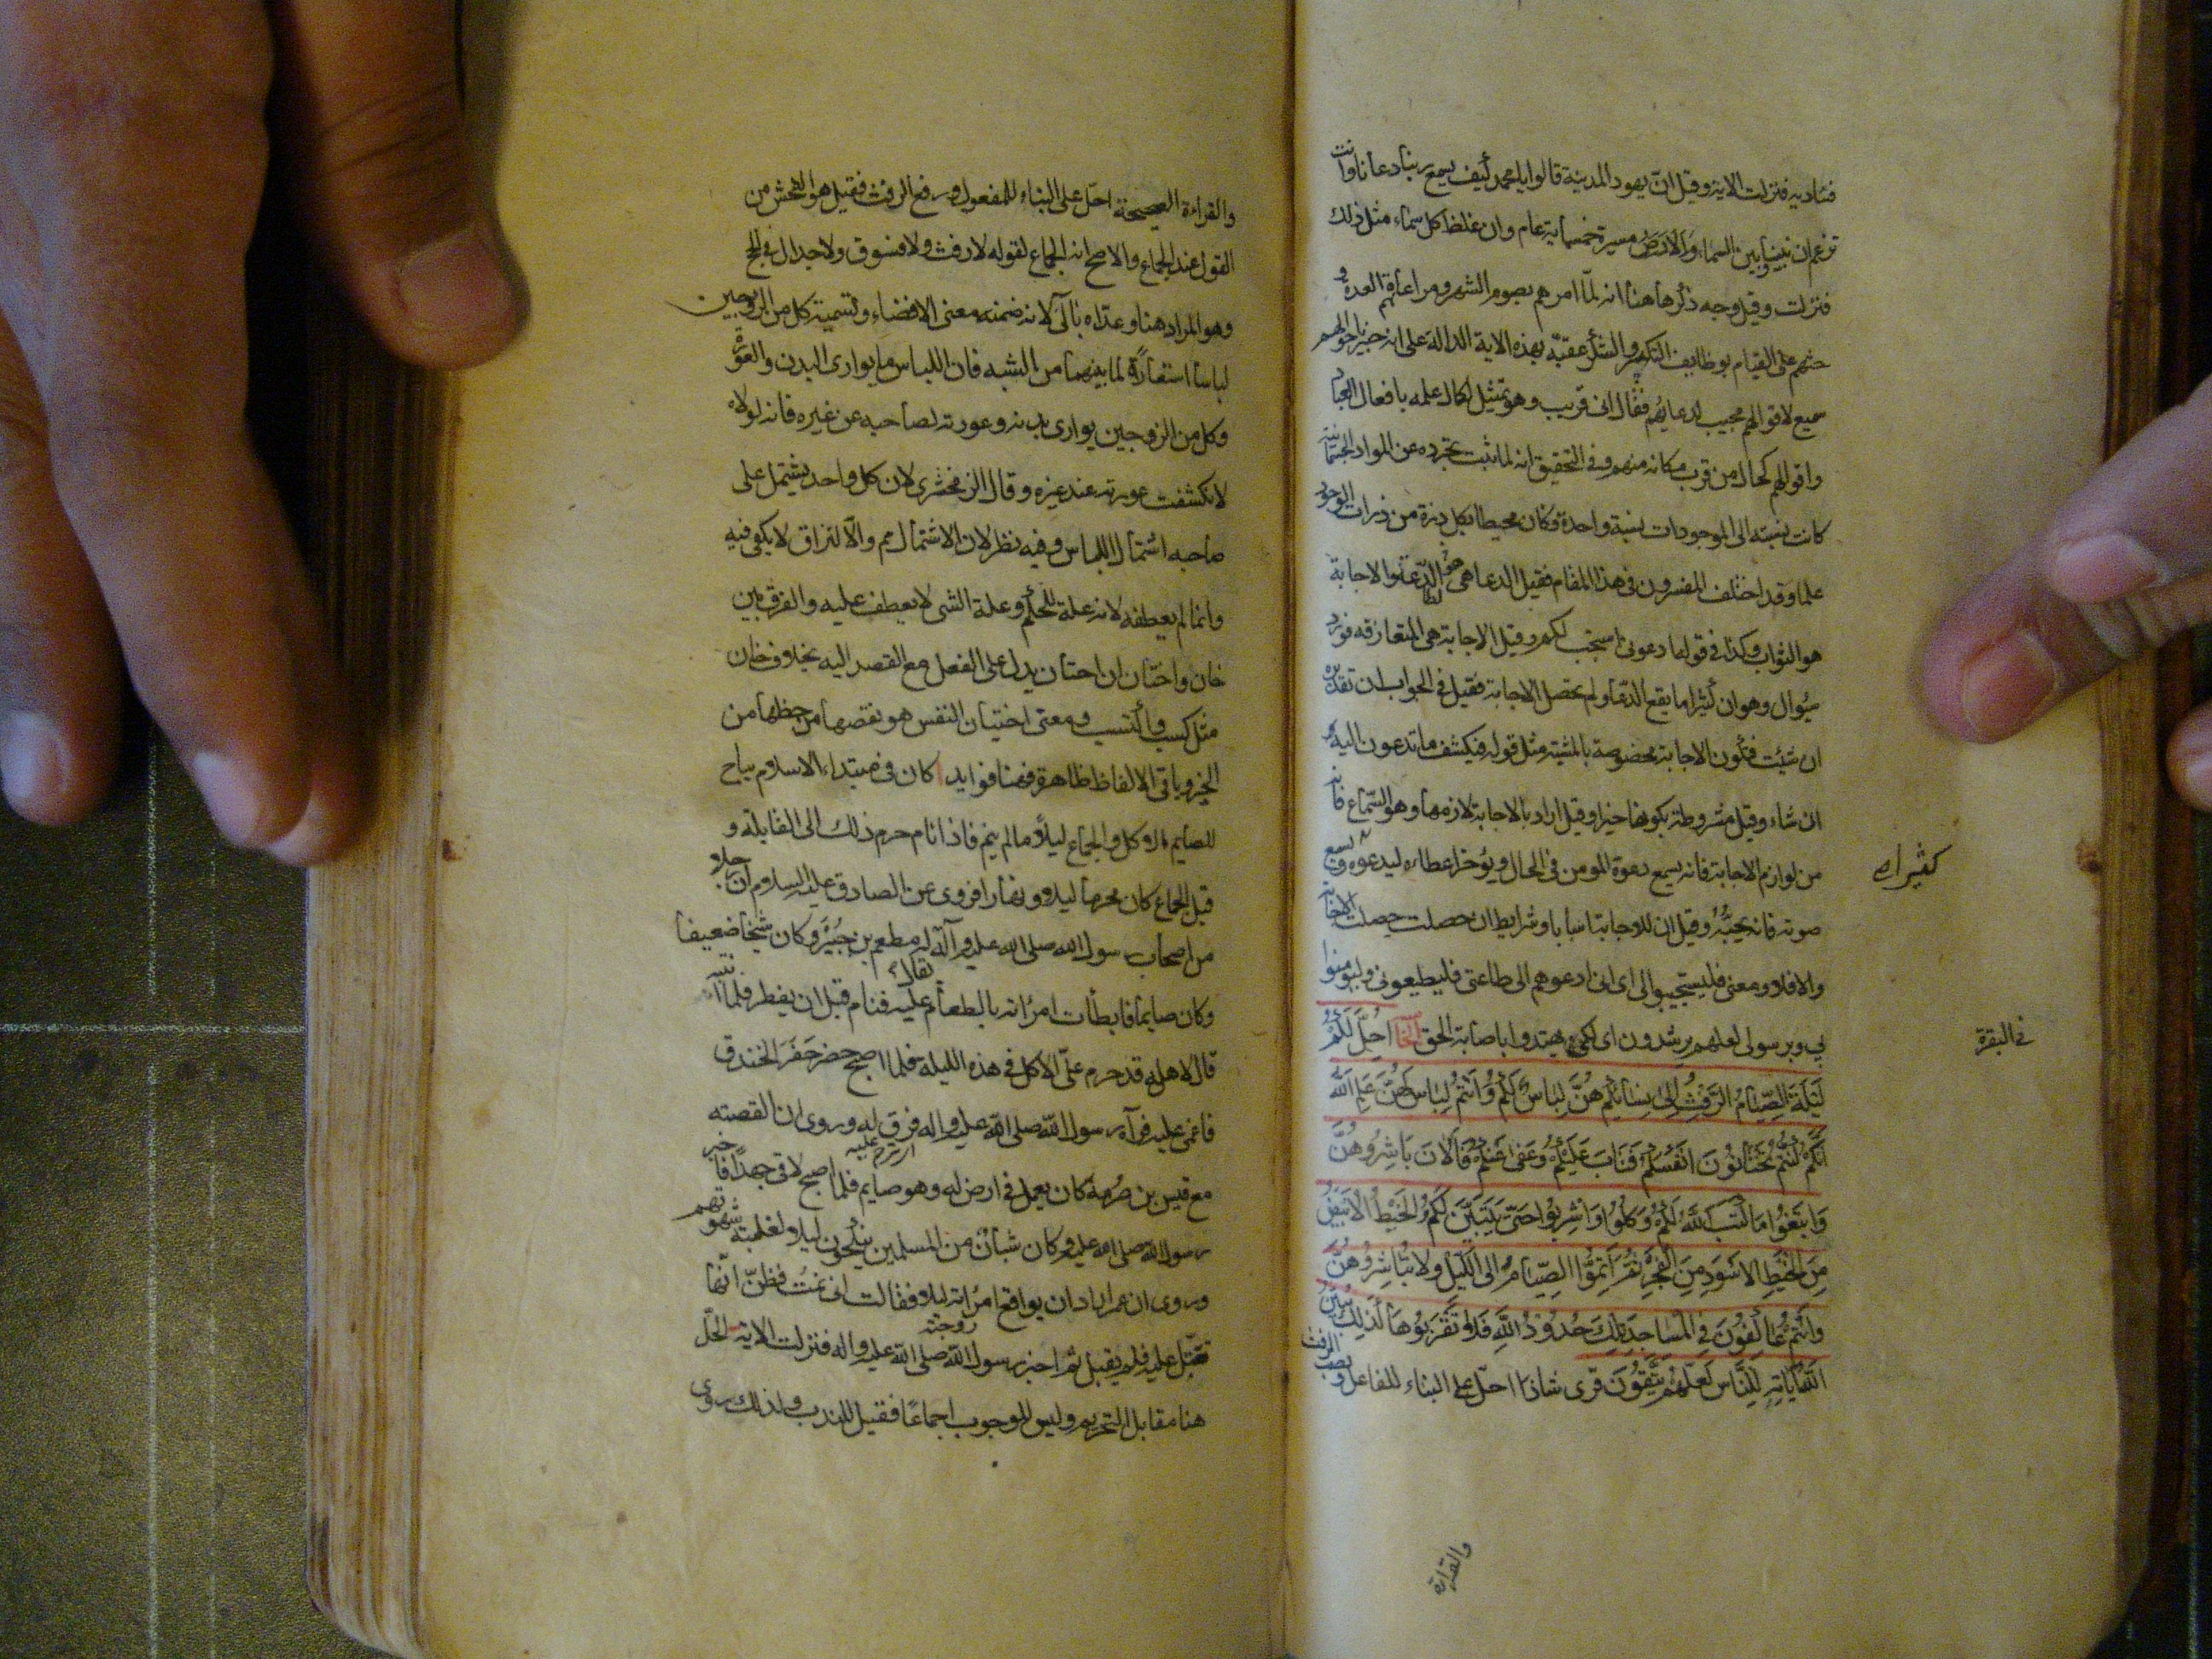 فنناديه فنزلت الاية وقيل ان يهود المدينة قالوا يا محمد كيف يسمع ربنا دعانا وانت
تزعم ان بيننا وبين السماء والارض مسيرة خمسماية عام وان غلظ كل سماء مثل ذلك
فنزلت وقيل وجه ذكرها هنا انه لما امرهم بصوم الشهر ومراعاتهم العدة و
حثهم على القيام بوظايف التكبير والشكر عقبه بهذه الاية الدالة على انه خبير باحوالهم
سميع لاقوالهم مجيب لدعايهم فقال انى قريب وهو تمثيل لكمال علمه بافعال العباد
واقوالهم كحال من قرب مكانه منهم وفى التحقيق انه لما ثبت تجرده عن المواد الجسمانية
كانت نسبته الى الموجودات نسبة واحدة فكان محيطا بكل ذرة من ذرات الوجود
علما وقد اختلف المفسرون فى هذا المقام فقيل الدعا هو الاجابة
هو الثواب وكذا فى قوله ادعونى استجب لكم وقيل الاجابة هى المتعارفة فورد
سؤال وهو ان كثيرا ما يقع الدعا ولم تحصل الاجابة فقيل فى الجواب ان تقديره
ان شئت فتكون الاجابة مخصوصة بالمشية مثل قوله فيكشف ما تدعون اليه
ان شاء وقيل مشروطة بكونها خيرا وقيل اراد بالاجابة لازمها وهو السماع فانه
من لوازم الاجابة فانه يسمع دعوة المومن فى الحال ويؤخر اعطاءه ليدعوه ويسمع
كثيرا
صوته فانه يحبه وقيل ان للاجابة اسبابا وشرايط ان حصلت حصلت الاجابة
والا فلا ومعنى فليستجيبوا لى اى انى ادعوهم الى طاعتى فليطيعونى وليومنوا
بى وبرسولى لعلهم يرشدون اى لكى يهتدوا باصابة الحق احل لكم
فى البقرة
ليلة الصيام الرفث الى نسائكم هن لباس لكم وانتم لباس لهن علم الله
انكم كنتم تختانون انفسكم فتاب عليكم وعفى عنكم فالان باشروهن
وابتغوا ما كتب الله لكم وكلوا واشربوا حتى يتبين لكم الخيط الابيض
من الخيط الاسود من الفجر ثم اتموا الصيام الى الليل ولا تباشروهن
وانتم عاكفون فى المساجد تلك حدود الله فلا تقربوها كذلك يبين
الله اياته للناس لعلهم يتقون قرى شاذا احل على البناء للفاعل ونصب الرفث
والقراءة
والقراءة الصحيحة احل على البناء للمفعول ورفع الرفث فقيل هو الفحش من
القول عند الجماع والاصح انه الجماع لقوله لا رفث ولا فسوق ولا جدال فى الحج
وهو المراد هنا وعداه بالى لانه ضمنه معنى الافضاء وتسمية كل من الزوجين
لباسا استعارة لما بينهما من الشبه فان اللباس ما يوارى البدن والعورة
وكل من الزوجين يوارى بدنه وعورته لصاحبه عن غيره فانه لولاه
لانكشفت عورته عند غيره وقال الزمخشرى لان كل واحد يشتمل على
صاحبه اشتمال اللباس وفيه نظر لان الاشتمال مم والالتزاق لا يكفى فيه
وانما لم يعطفه لانه علة للحكم وعلة الشى لا يعطف عليه والفرق بين
خان واختان ان اختان يدل على الفعل مع القصد اليه بخلاف خان
مثل كسب واكتسب ومعنى اختيان النفس هو نقصها من حظها من
الخير وباقى الالفاظ ظاهرة فهنا فوايد ا كان فى مبتداء الاسلام يباح
للصايم الاكل والجماع ليلا ما لم ينم فاذا نام حرم ذلك الى القابلة و
قيل الجماع كان محرما ليلا ونهارا فروى عن الصادق عليه السلام ان رجلا
من اصحاب رسول الله صلى الله عليه وآله له مطعم بن جبير وكان شيخا ضعيفا
وكان صايما فابطأت امرأته بالطعام عليه فنام قبل ان يفطر فلما انتبه
قال لاهله قد حرم على الاكل فى هذه الليلة فلما اصبح حضر حفر الخندق
فاغمى عليه فرآه رسول الله صلى الله عليه واله فرق له وروى ان القصة
مع قيس بن صرمة كان يعمل فى ارض له وهو صايم فلما اصبح لاقى جهدا فاخبر
رسول الله صلى الله عليه وكان شبان من المسلمين ينكحون ليلا لغلبة شهوتهم
وروى ان عمر اراد ان يواقع امرأته ليلا فقالت انى نمت فظن انها
تعتل عليه فلم يقبل ثم اخبر رسول الله صلى الله عليه واله فنزلت الاية الحل
هنا مقابل التحريم وليس للوجوب اجماعا فقيل للندب ولذلك روى